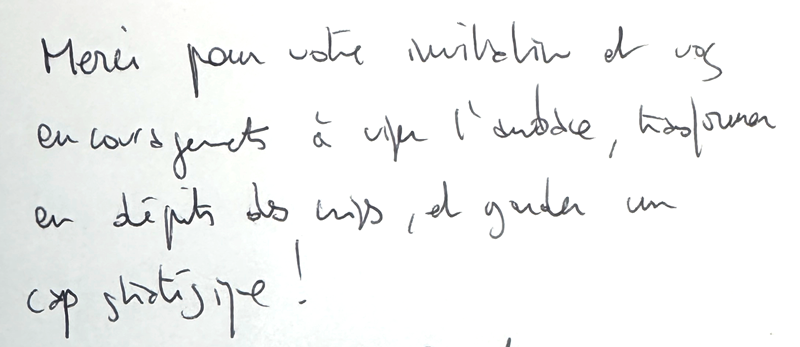 Merci pour votre invitation et vos
encouragements à viser l'audace, transformer
en dépits des crises, et garder un
cap stratégique !